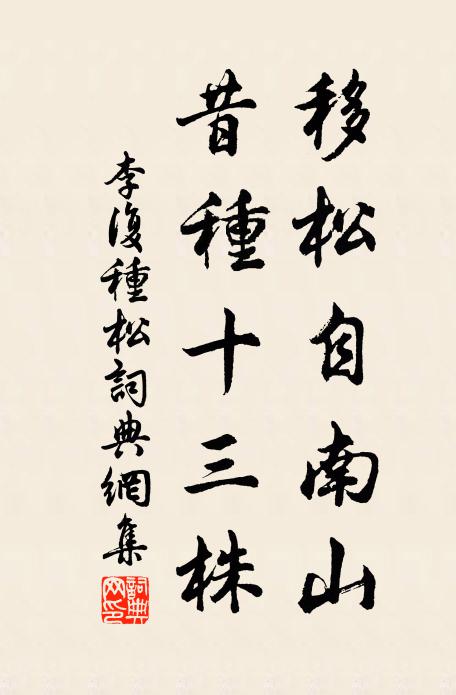 移松自南山
昔種十三株
李復種松詞典網集
詞典網印